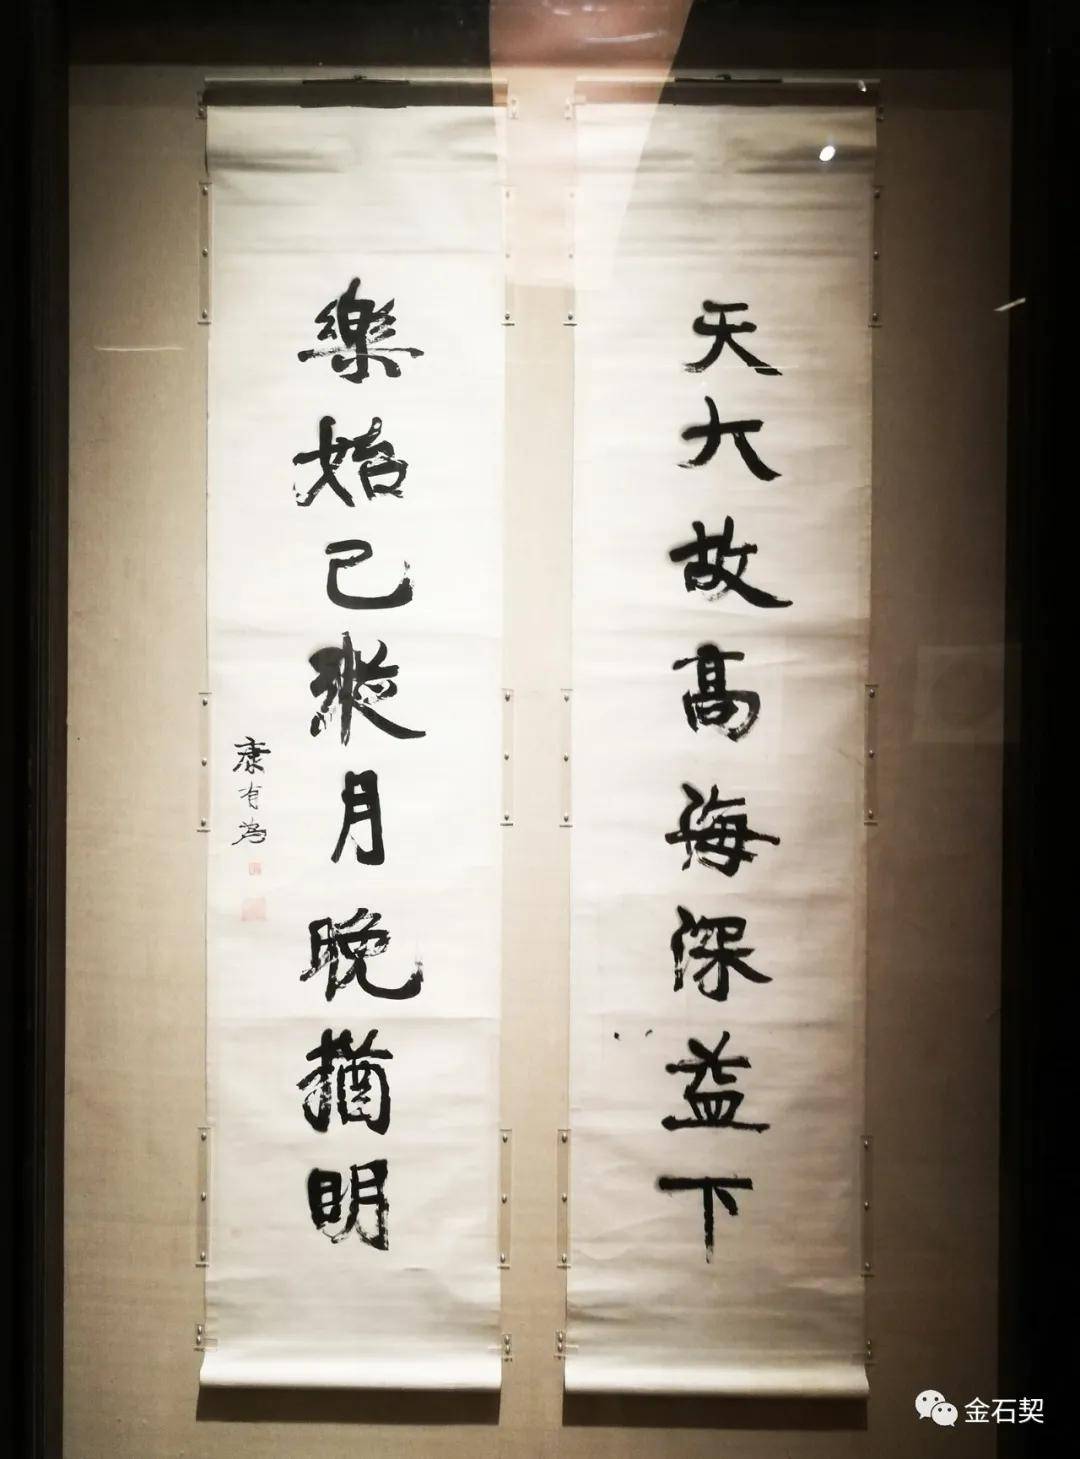 天大故高海深益下
樂始已縱月晚猶明
康有為
金石契